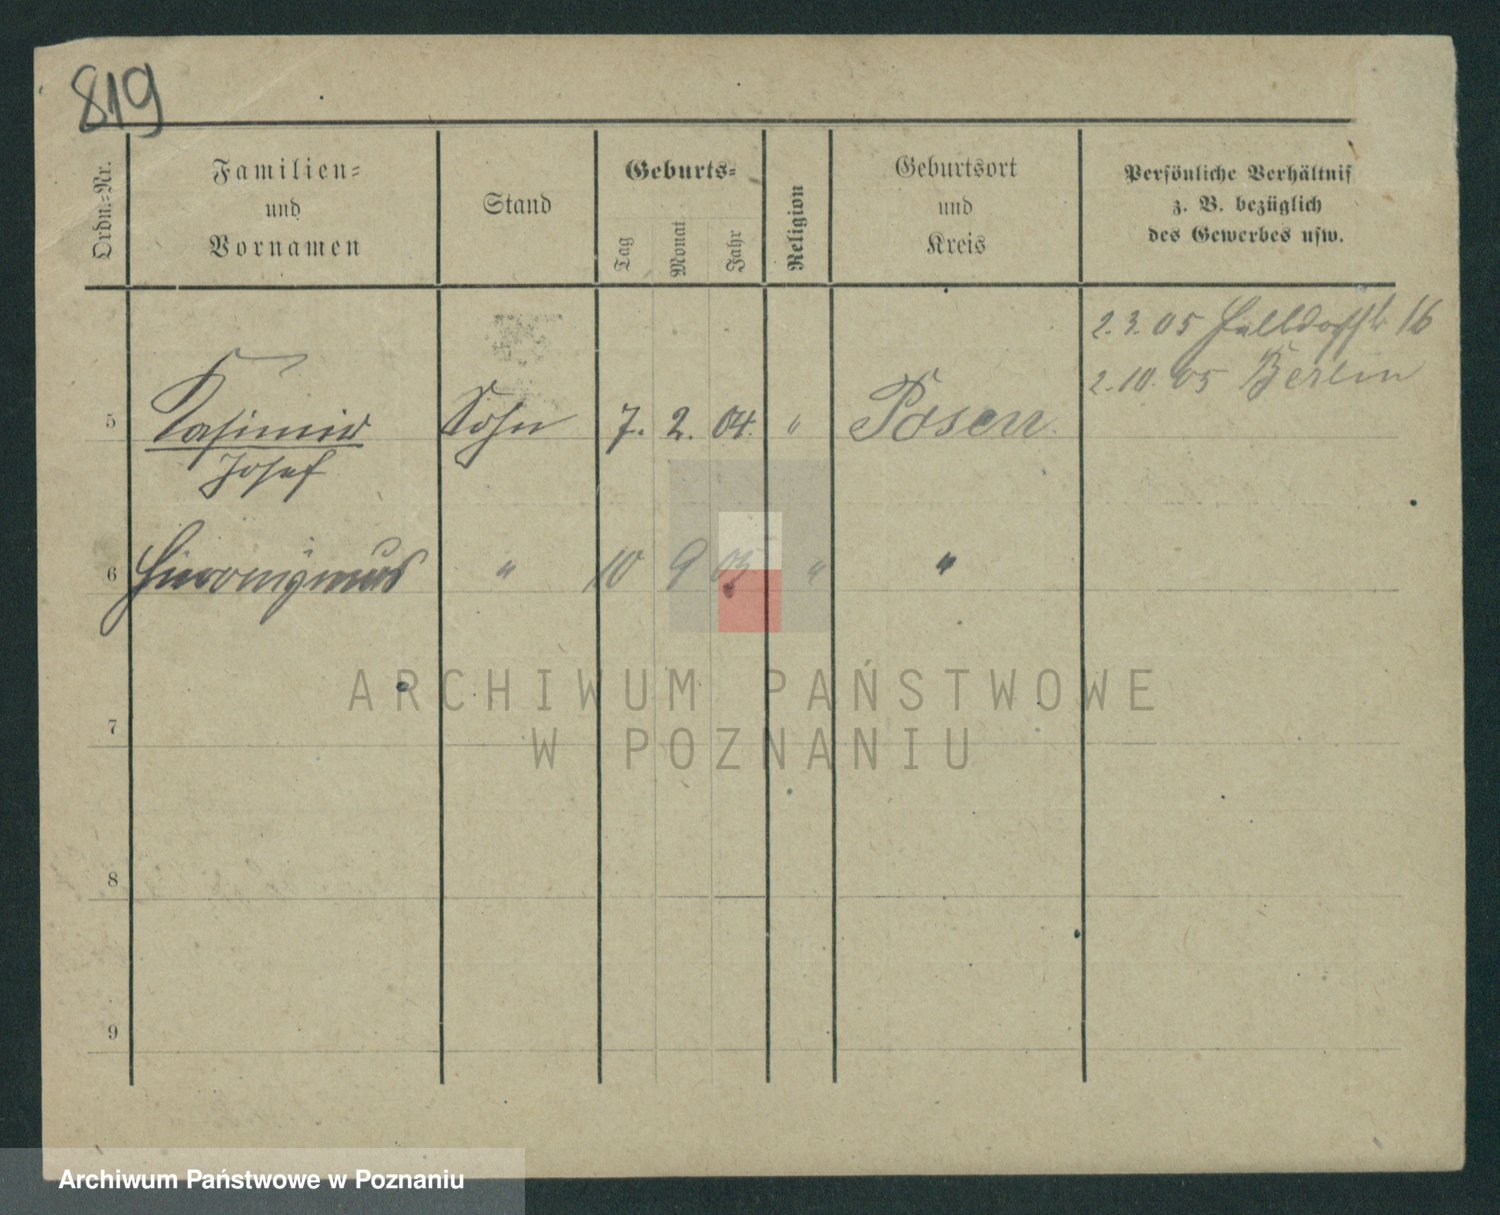 819
Ordn.-Nr.
Familien-
und
Vornamen
Stand
Geburts-
Tag
Monat
Jahr
Religion
Geburtsort
und
Kreis
Persönliche Verhältnis
z. B. bezüglich
des Gewerbes usw.
2.3.05 16
2.10.05 Berlin
5 Kasimir Sohn 7. 2. 04. " Posen
Josef
6 Hieronÿmus " 10 9 05 " "
ARCHIWUM PAŃSTWOWE
W POZNANIU
7
8
9
Archiwum Państwowe w Poznaniu